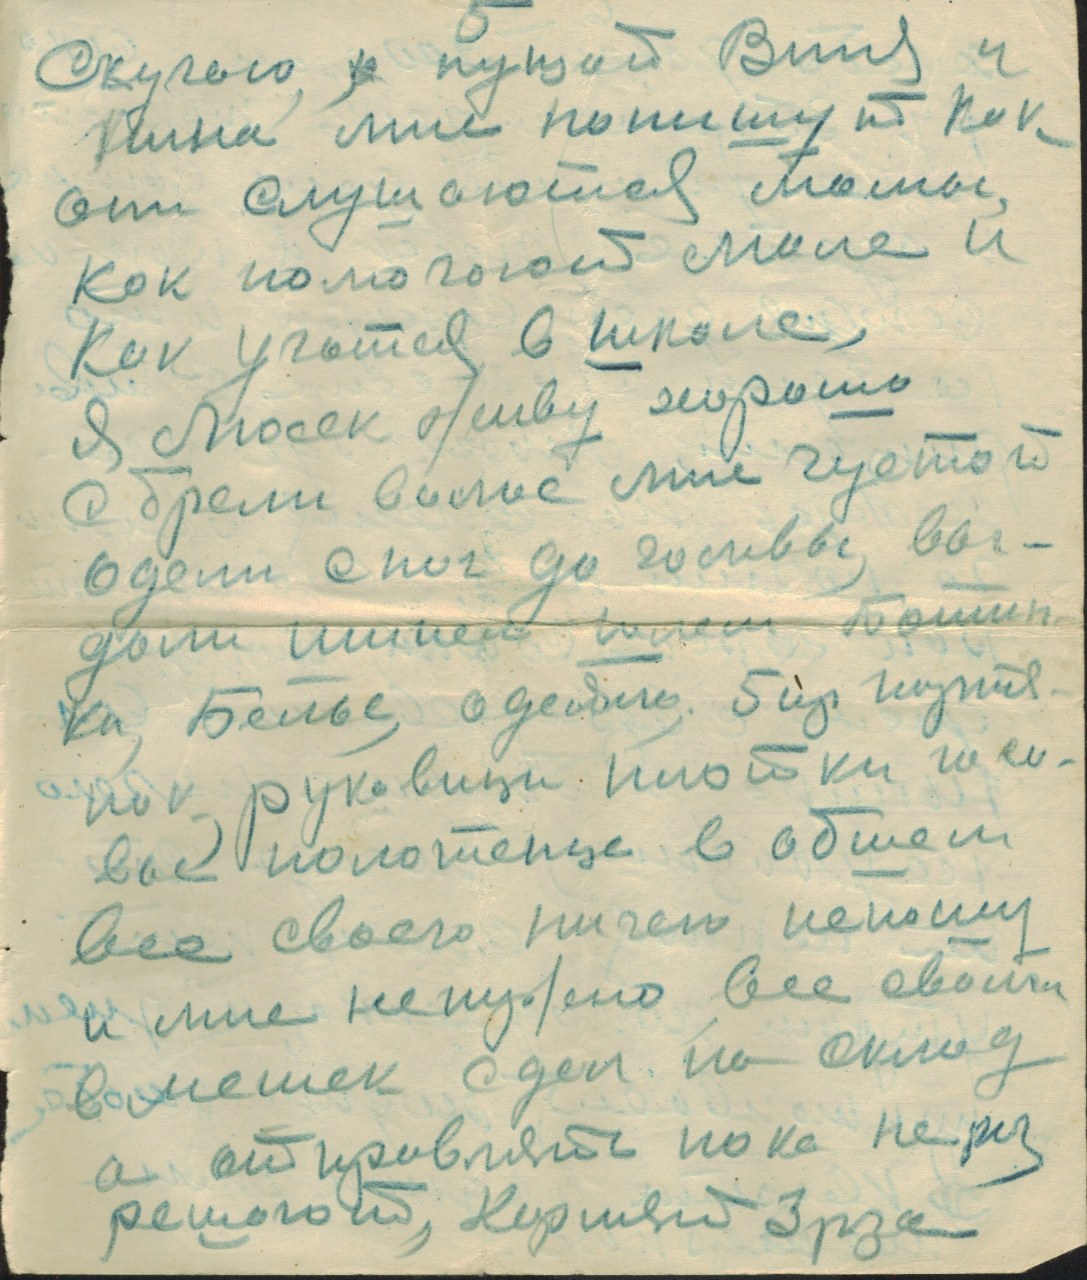 5
Скучаю, и пущай Витя и
Нина мне попишут как
они слушаются мамы,
как помогают маме и
как учатся в школе,
Я Люсек живу хорошо
сбрели волос мне густой
одели с ног до головы, вы-
дали шинель шлем ботин-
ки, Белье, одеяло, 5 пар портя-
нок, рукавици платки носо-
вые полотенце в обшем
все своего ничего неношу
и мне ненужно все свои
в мешек сдал на склад
а отправлять пока нераз
решают, Кормят 3 раза